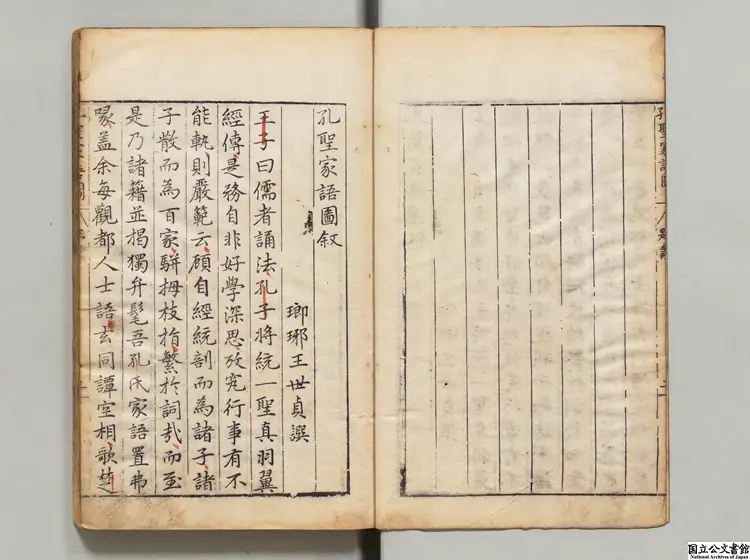 孔聖家語圖叙
瑯琊王世貞譔
王子曰儒者誦法孔子將統一聖真羽翼
經傳是務自非好學深思攷究行事有不
能軌則嚴範云顧自經統剖而為諸子諸
子散而為百家駢拇枝指繁於詞哉而至
是乃諸籍並揭獨弁髦吾孔氏家語置弗
喙盖余每觀都人士語玄同譚空相歌楚
国立公文書館
National Archives of Japan